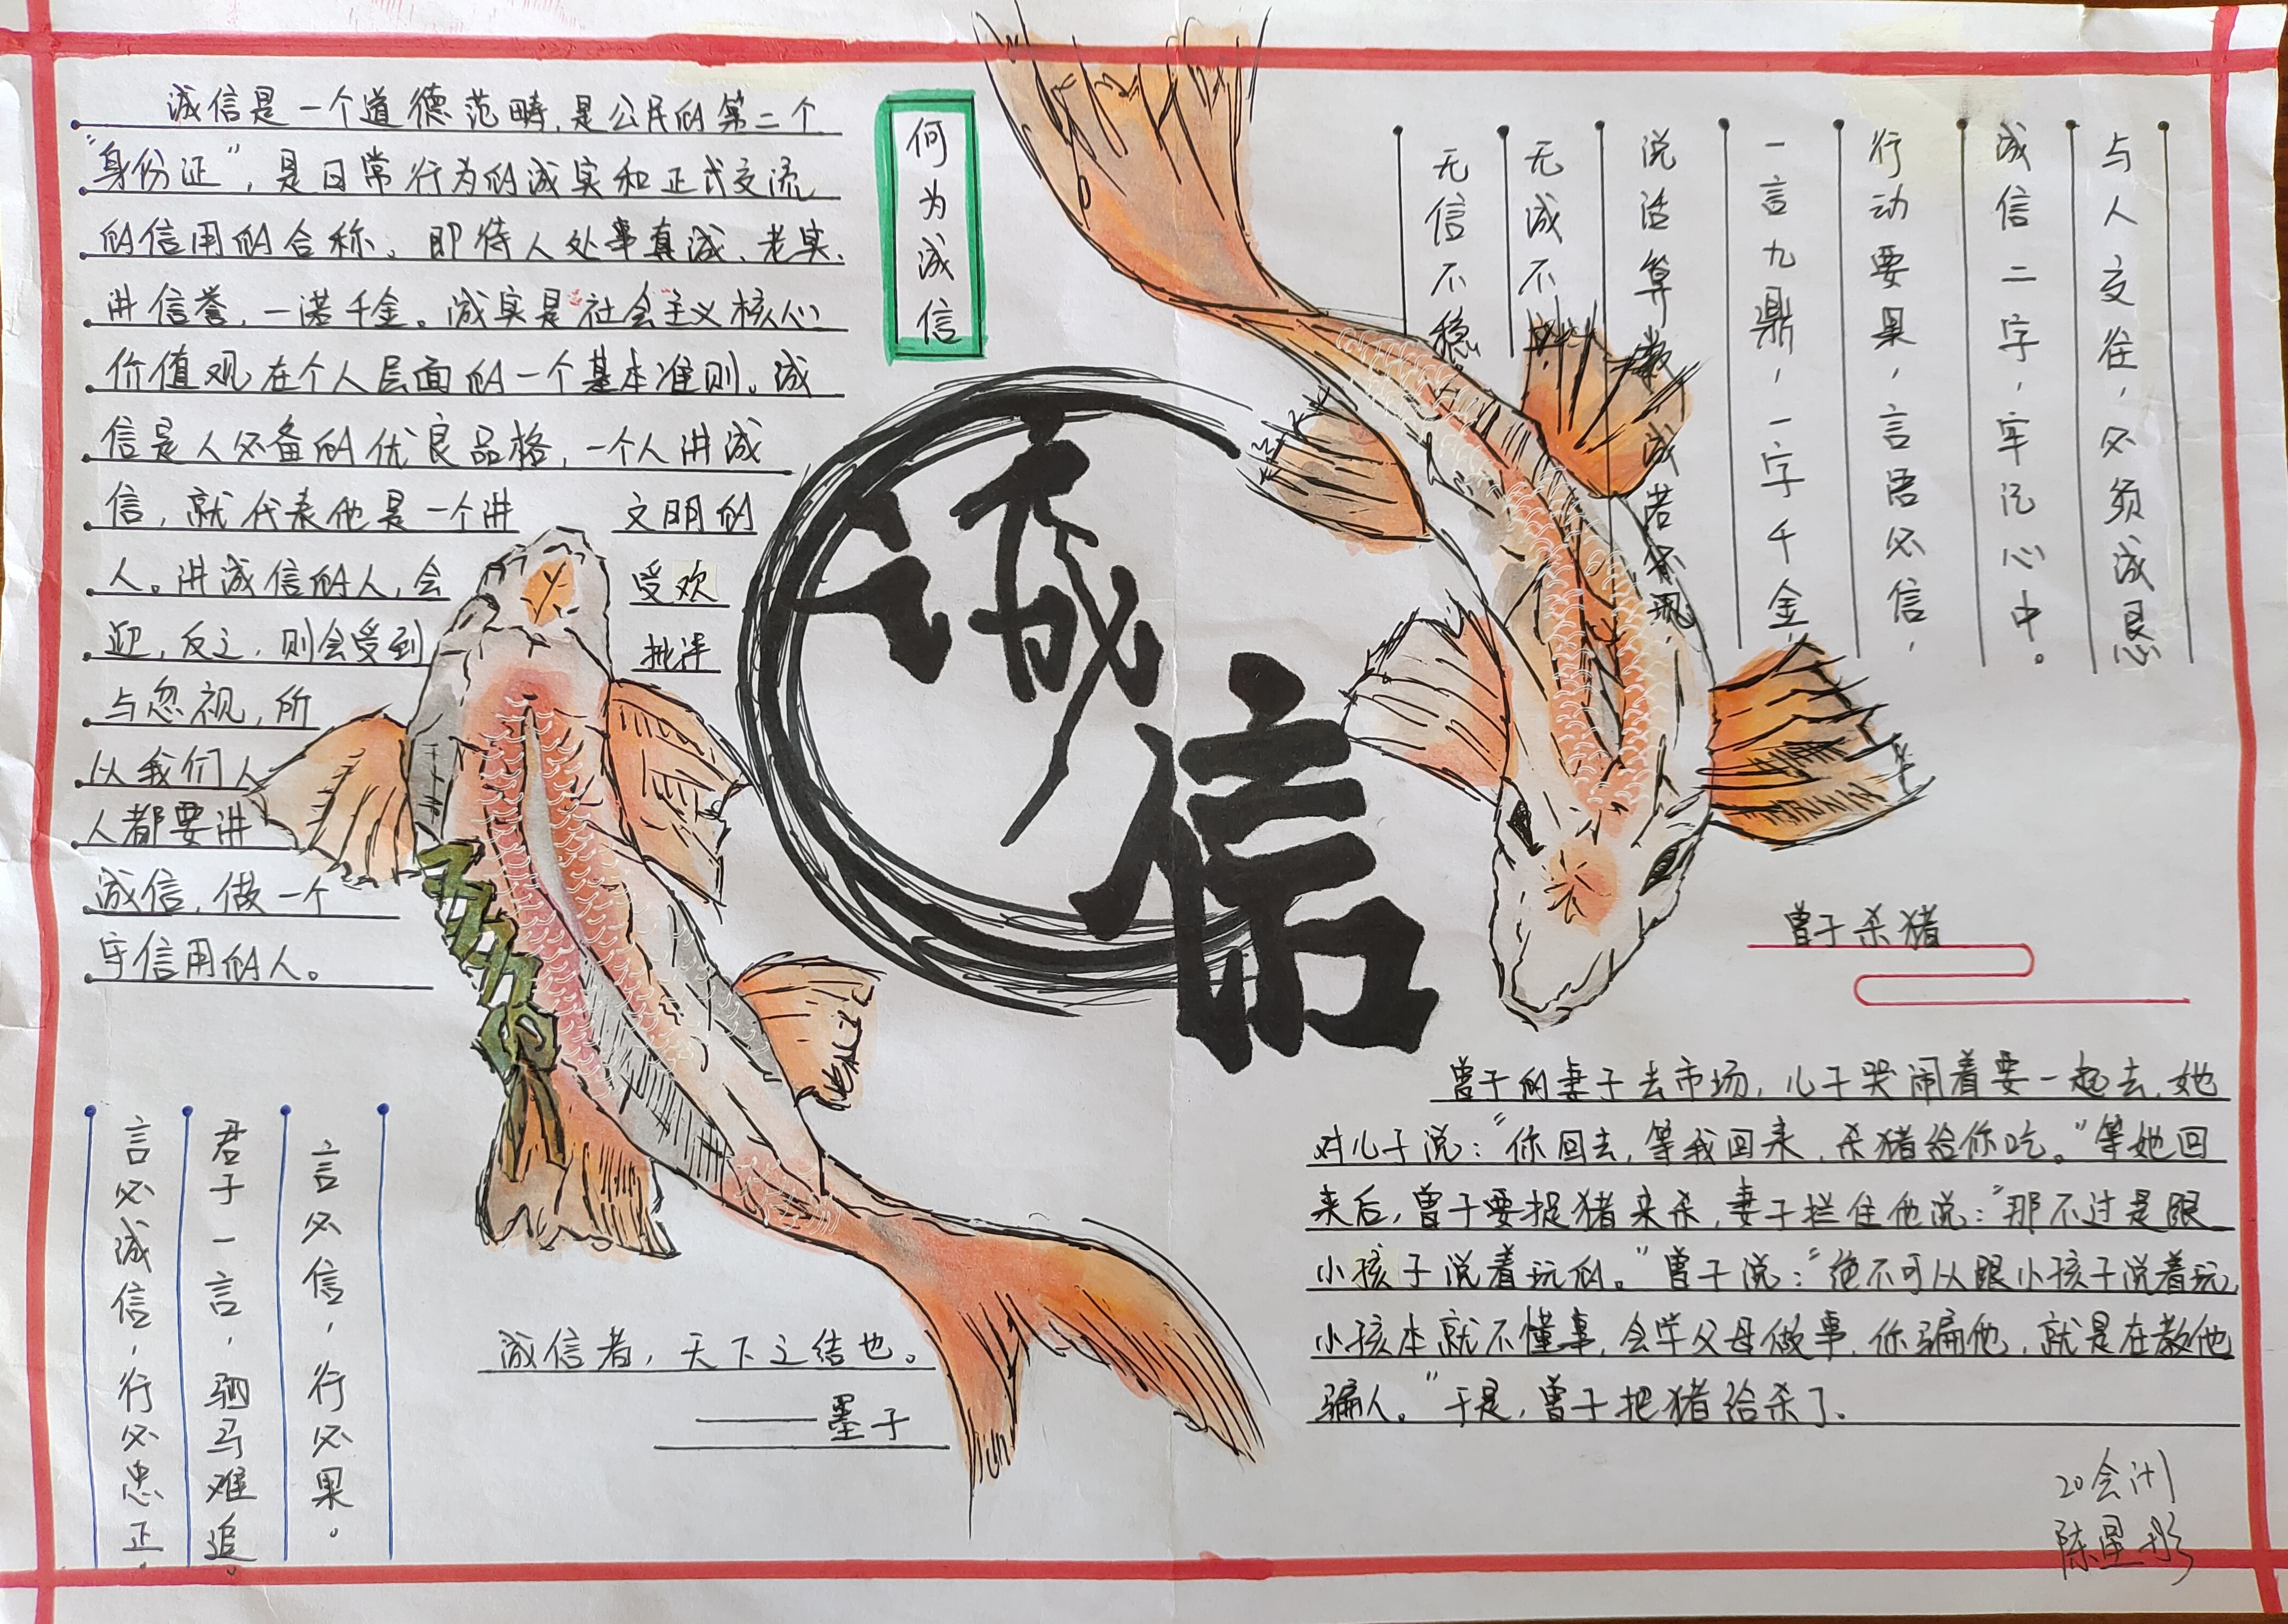 何为诚信
诚信是一个道德范畴,是公民的第二个
“身份证”,是日常行为的诚实和正式交流
的信用的合称。即待人处事真诚、老实、
讲信誉,一诺千金。诚实是“社会主义核心
价值观”在个人层面的一个基本准则。诚
信是人必备的优良品格,一个人讲诚
信,就代表他是一个讲 文明的
人。讲诚信的人,会 受欢
迎,反之,则会受到 批评
与忽视,所
以我们人
人都要讲
诚信,做一个
守信用的人。
诚
信
与人交往,必须诚恳
诚信二字,牢记心中。
行动要果,言语必信,
一言九鼎,一字千金,
说话算数,诚若
无诚不
无信不稳
曾子杀猪
曾子的妻子去市场,儿子哭闹着要一起去,她
对儿子说:“你回去,等我回来,杀猪给你吃。”等她回
来后,曾子要捉猪来杀,妻子拦住他说:“那不过是跟
小孩子说着玩的。”曾子说:“绝不可以跟小孩子说着玩,
小孩本就不懂事,会学父母做事,你骗他,就是在教他
骗人。”于是,曾子把猪给杀了.
言必信,行必果。
君子一言,驷马难追。
言必诚信,行必忠正.
诚信者,天下之结也。
——墨子
20会计
陈星彤